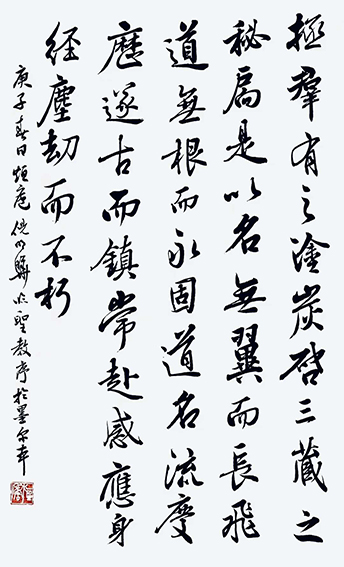 拯羣有之塗炭啓三藏之
秘扃是以名無翼而長飛
道無根而永固道名流慶
歷遂古而鎮常赴感應身
經塵劫而不朽
庚子春日 臨聖教序於墨爾本